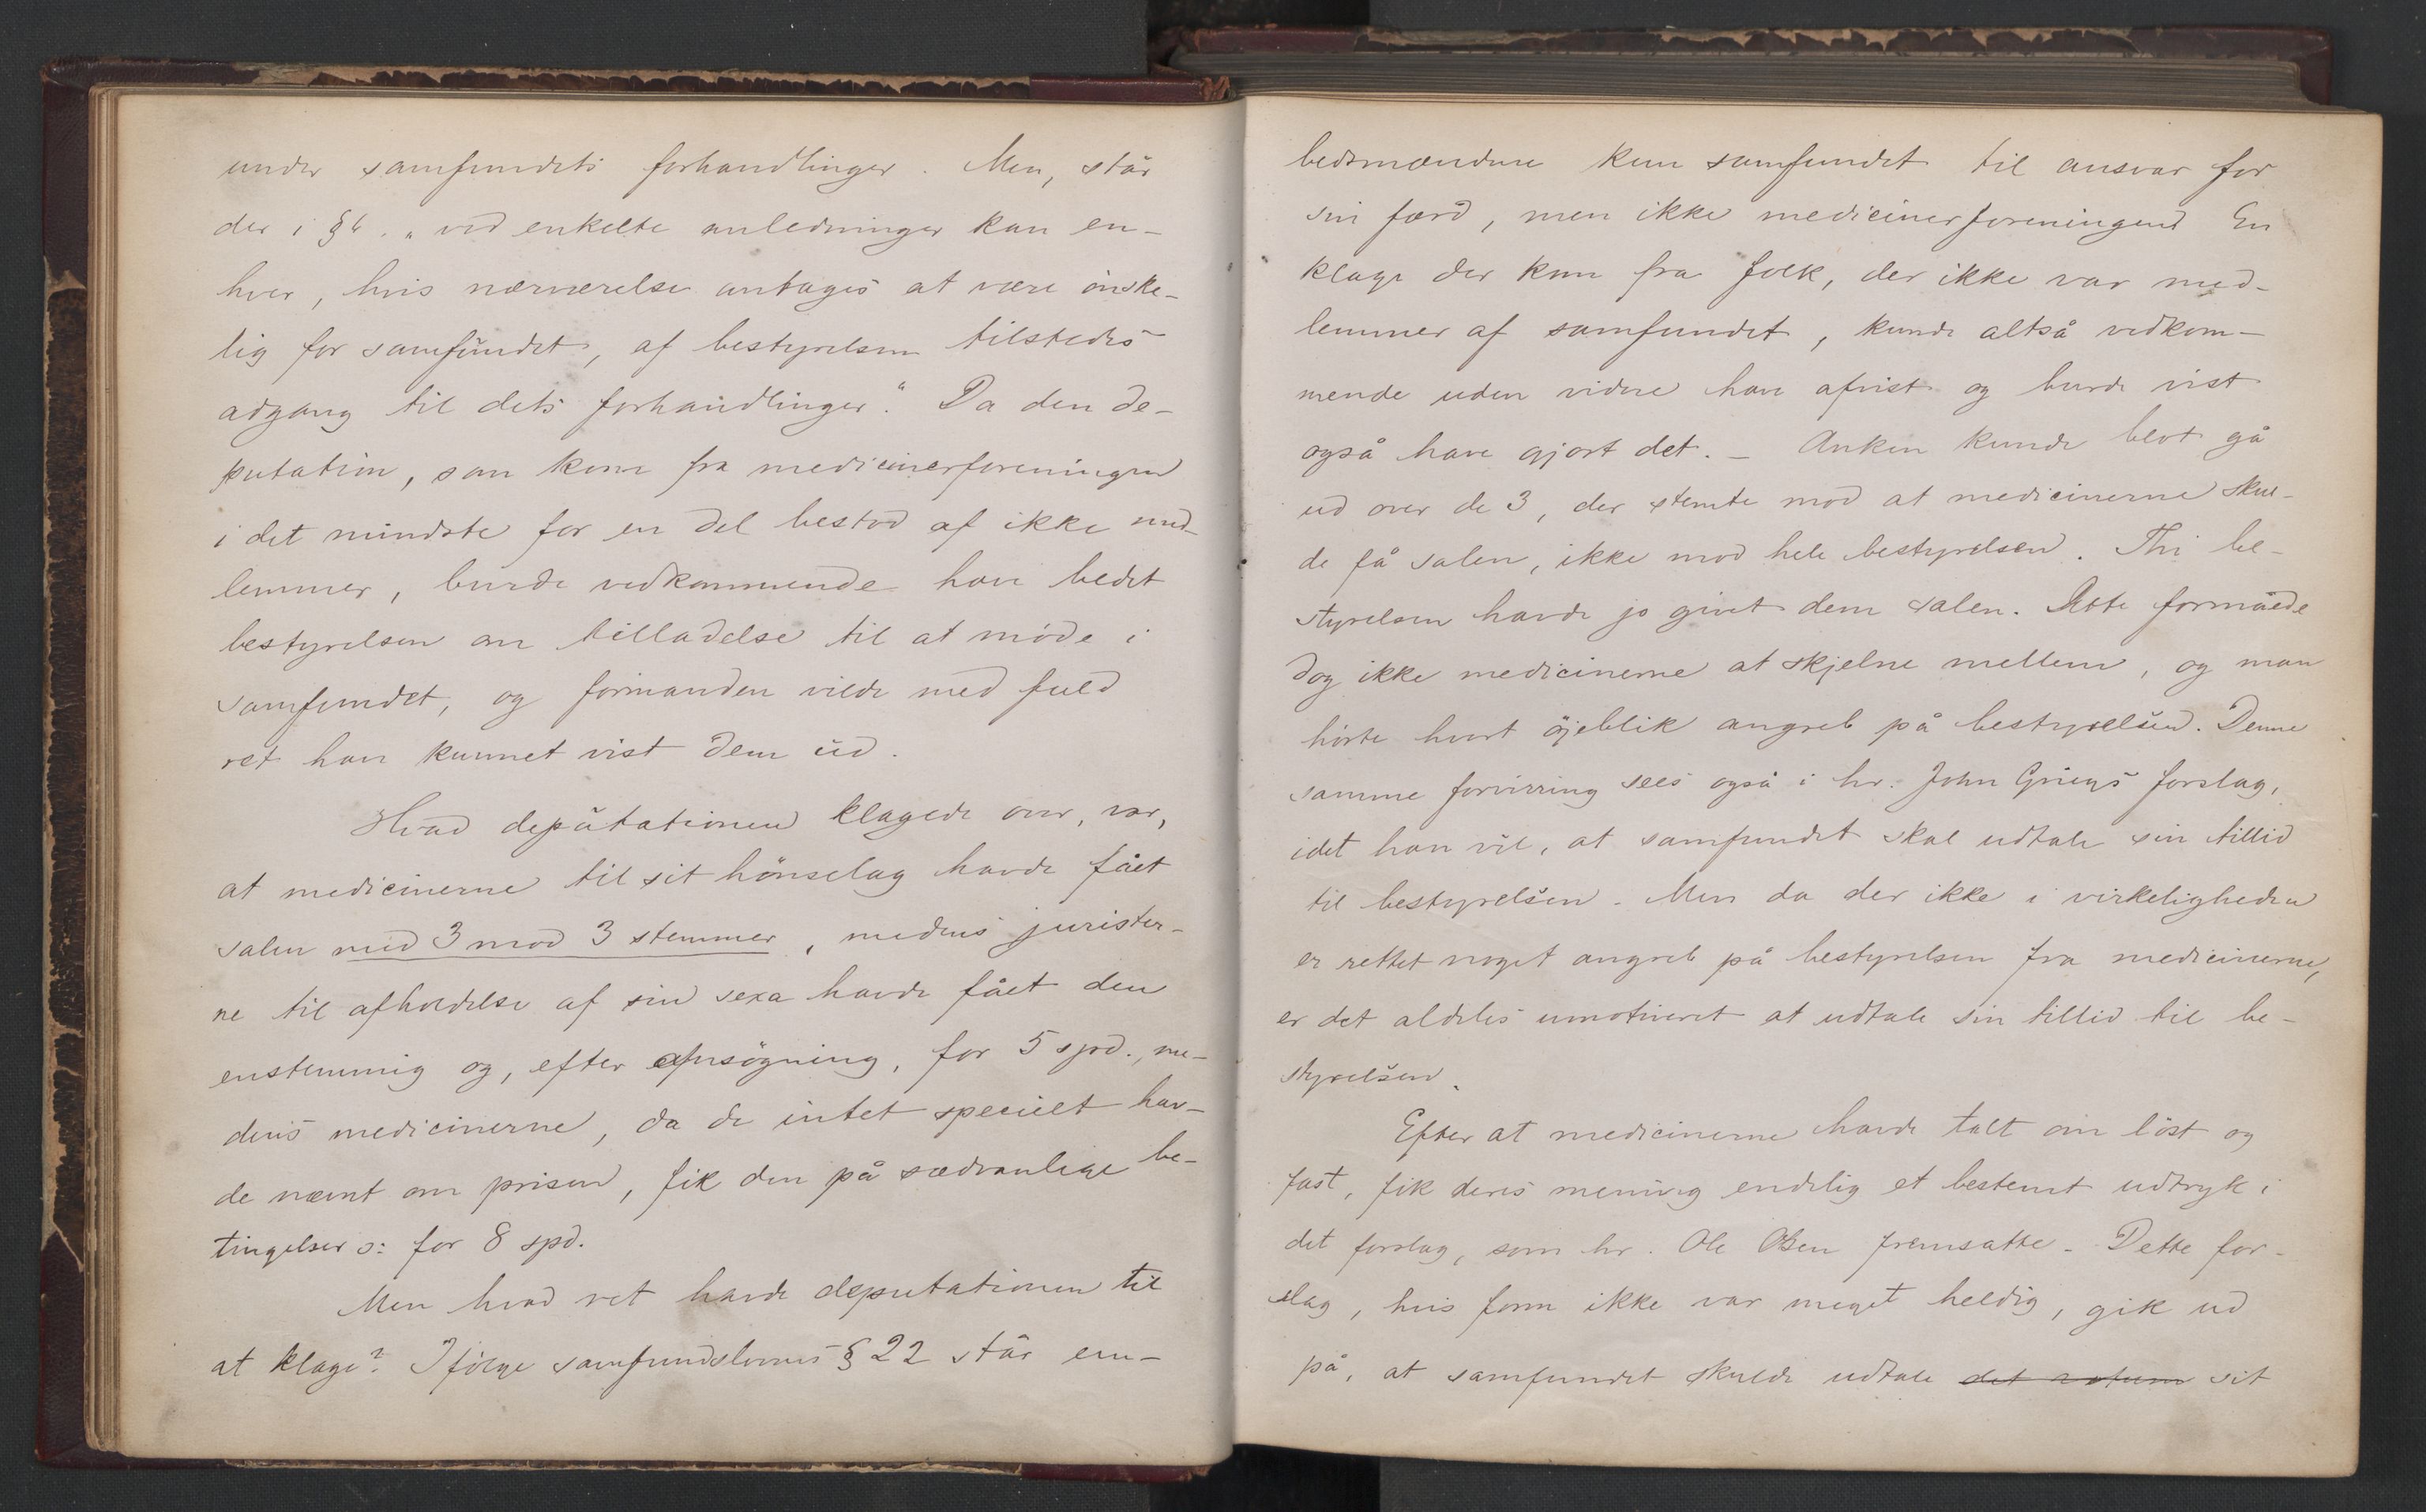 under samfundets forhandlinger. Men, står
der i § 6. „ved enkelte anledninger kan en-
hver, hvis nærværelse antages at være ønske-
lig for samfundet, af bestyrelsen tilstedes
adgang til dets forhandlinger." Da den de-
putation, som kom fra medicinerforeningen
i det mindste for en del bestod af ikke med-
lemmer, burde vedkommende have bedet
bestyrelsen om tilladelse til at møde i
samfundet, og formanden vilde med fuld
ret have kunnet vist dem ud.
Hvad deputationen klagede over, var,
at medicinerne til sit hønselag havde fået
salen med 3 mod 3 stemmer, medens jurister-
ne til afholdelse af sin sexa havde fået den
enstemmig og, efter ansøgning, for 5 spd., me-
dens medicinerne, da de intet specielt hav-
de nævnt om prisen, fik den på sædvanlige be-
tingelser ɔ: for 8 spd.
Men hvad ret havde deputationen til
at klage? Ifølge samfundslovens § 22 står em-
bedsmændene kun samfundet til ansvar for
sin færd, men ikke medicinerforeningen. En
klage der kom fra folk, der ikke var med-
lemmer af samfundet, kunde altså vedkom-
mende uden videre have afvist og burde vist
også have gjort det. – Anken kunde blot gå
ud over de 3, der stemte mod at medicinerne skul-
de få salen, ikke mod hele bestyrelsen. Thi be-
styrelsen havde jo givet dem salen. Dette formåede
dog ikke medicinerne at skjelne mellem, og man
hørte hvert øjeblik angreb på bestyrelsen. Denne
samme forvirring sees også i hr. John Griegs forslag,
idet han vil, at samfundet skal udtale sin tillid
til bestyrelsen. Men da der ikke i virkeligheden
er rettet noget angreb på bestyrelsen fra medicinerne,
er det aldeles umotiveret at udtale sin tillid til be-
styrelsen.
Efter at medicinerne havde talt om løst og
fast, fik deres mening endelig et bestemt udtryk i
det forslag, som hr. Ole Olsen fremsatte. Dette for-
slag, hvis form ikke var meget heldig, gik ud
på, at samfundet skulde udtale det votum sit